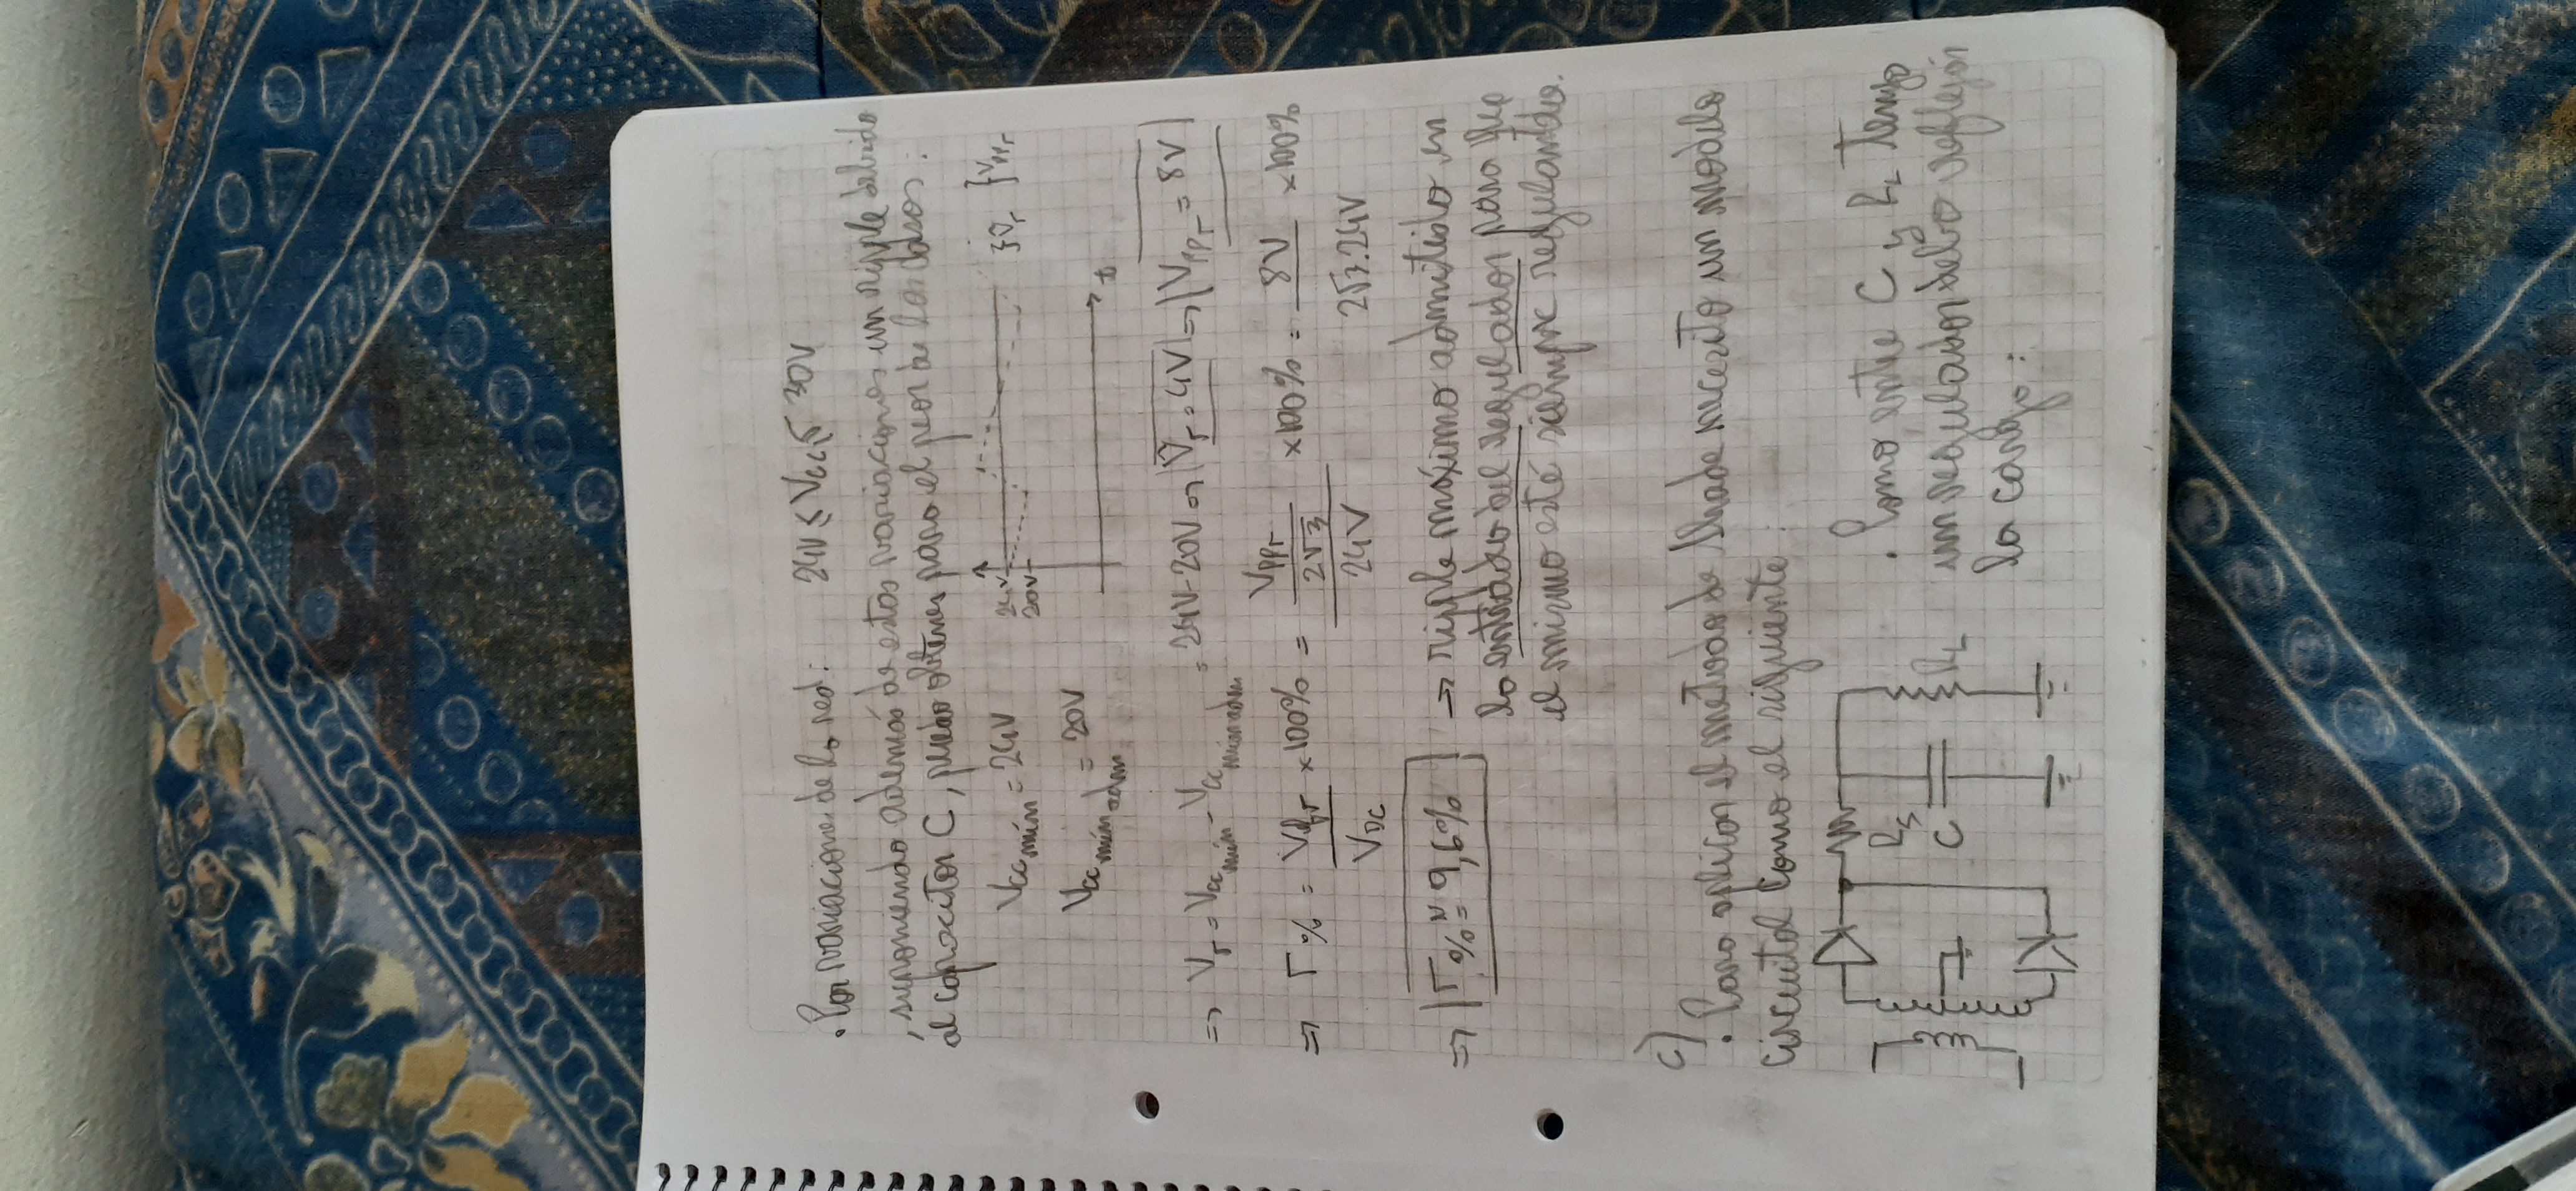 . Por variaciones de la red: 24V ≤ Vcc ≤ 30V
, suponiendo además de estas variaciones un ripple debido
al capacitor C, puedo obtener para el peor de los casos:
Vcc mín = 24V
24V
20V
} V̂r } Vppr
Vcc mín adm = 20V
t
=> Vr = Vcc mín - Vcc mín adm = 24V - 20V => V̂r = 4V => Vppr = 8V
=> r% = Vefr / VDC × 100% = (Vppr / 2√3) / 24V × 100% = 8V / 2√3.24V × 100%
=> r% ≈ 9,6% → ripple máximo admitido en
la entrada del regulador para que
el mismo esté siempre regulando.
c)
. Para aplicar el metodo de Shade necesito un modelo
circuital como el siguiente:
Rs
C
RL
. Como entre C y RL tengo
un regulador debo reflejar
la carga: